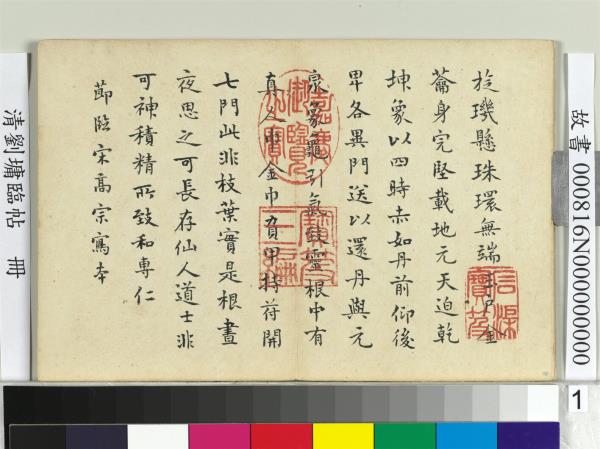 故書000816N000000000
1
旋璣懸珠環無端玉戶金
籥身完堅載地元天迫乾
坤象以四時赤如丹前仰後
卑各異門送以還丹與元
泉象龜引氣致靈根中有
真人巾金巾負甲持符開
七門此非枝葉實是根晝
夜思之可長存仙人道士非
可神積精所致和專仁
節臨宋高宗寫本
嘉慶御覽之寶
清劉墉臨帖 冊